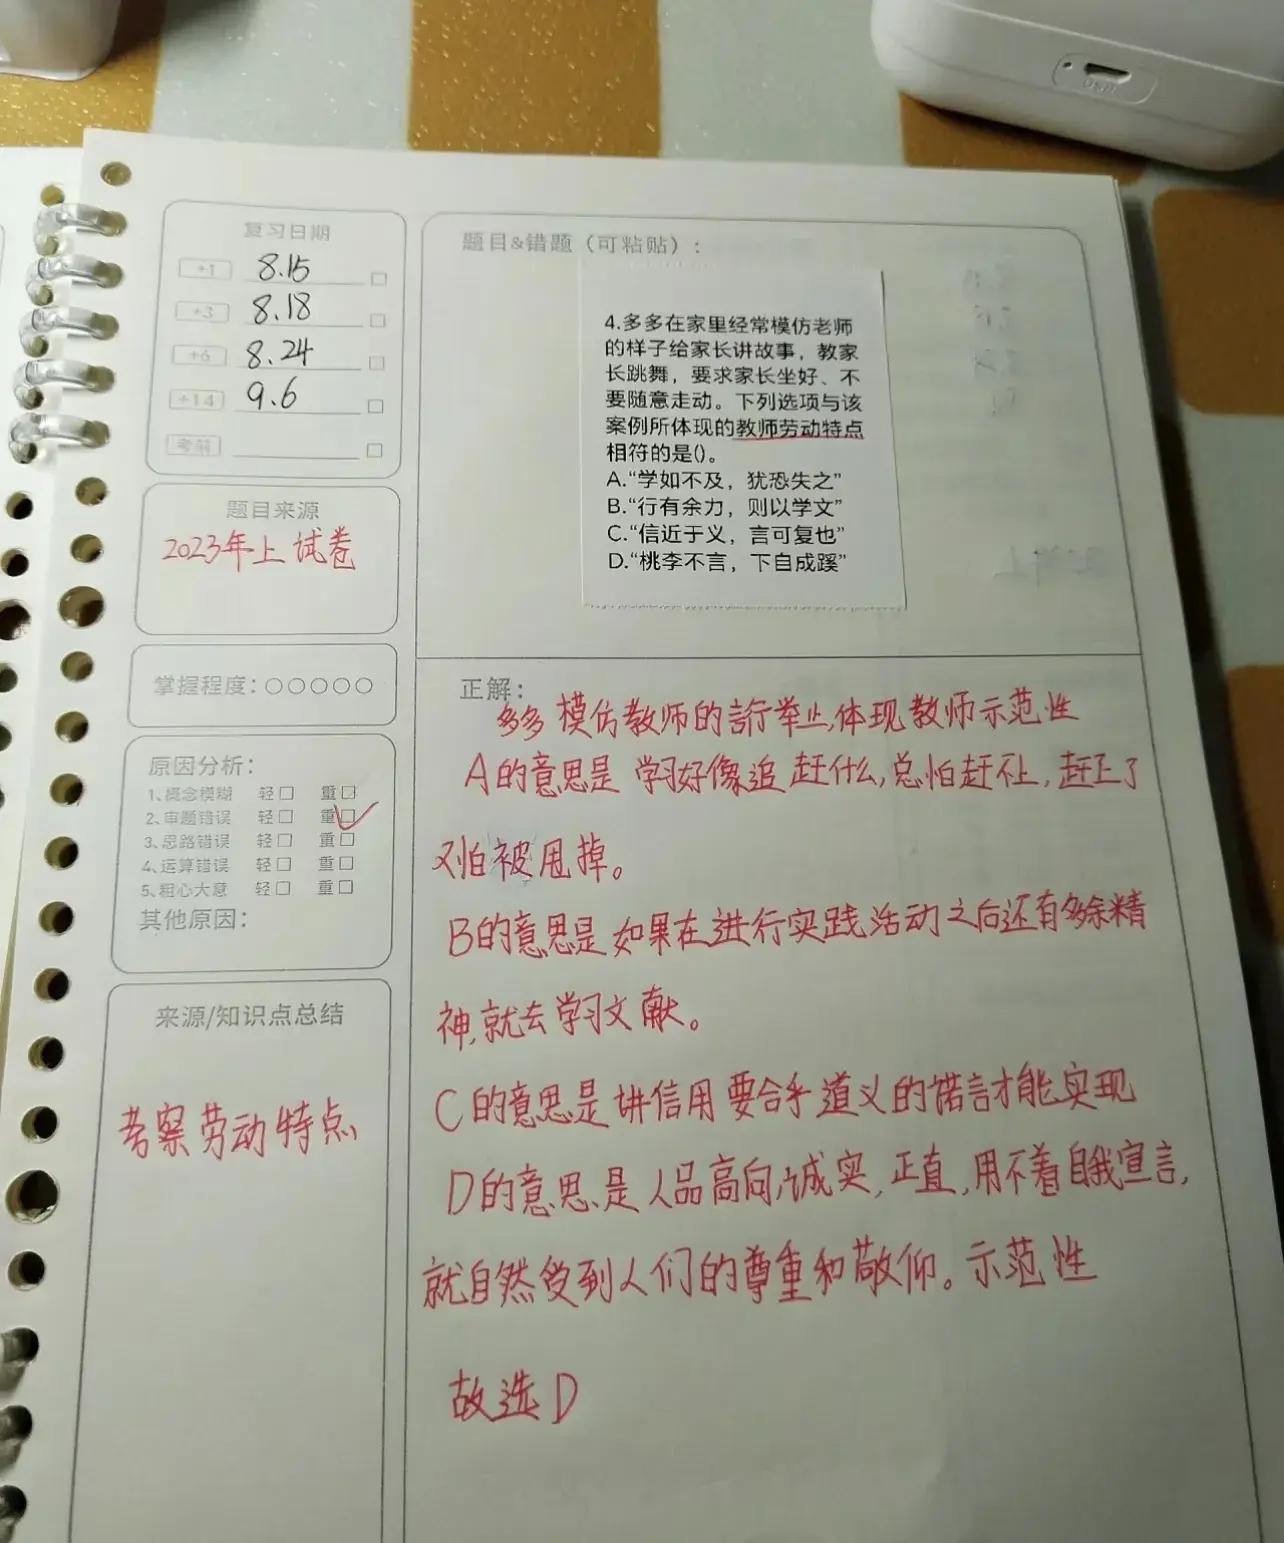 复习日期
+1 8.15
+3 8.18
+6 8.24
+14 9.6
考前
题目来源
2023年上试卷
掌握程度：○○○○○
原因分析：
1、概念模糊 轻□ 重□
2、审题错误 轻□ 重□
3、思路错误 轻□ 重□
4、运算错误 轻□ 重□
5、粗心大意 轻□ 重□
其他原因：
来源/知识点总结
考察劳动特点
题目&错题（可粘贴）：
4.多多在家里经常模仿老师
的样子给家长讲故事，教家
长跳舞，要求家长坐好、不
要随意走动。下列选项与该
案例所体现的教师劳动特点
相符的是()。
A.“学如不及，犹恐失之”
B.“行有余力，则以学文”
C.“信近于义，言可复也”
D.“桃李不言，下自成蹊”
正解：
多多模仿教师的言行举止,体现教师示范性
A的意思是 学习好像追赶什么,总怕赶不上,赶上了
又怕被甩掉。
B的意思是如果在进行实践活动之后还有多余精
神,就去学习文献。
C的意思是讲信用要合乎道义的诺言才能实现
D的意思是人品高尚,诚实,正直,用不着自我宣言,
就自然受到人们的尊重和敬仰。示范性
故选D